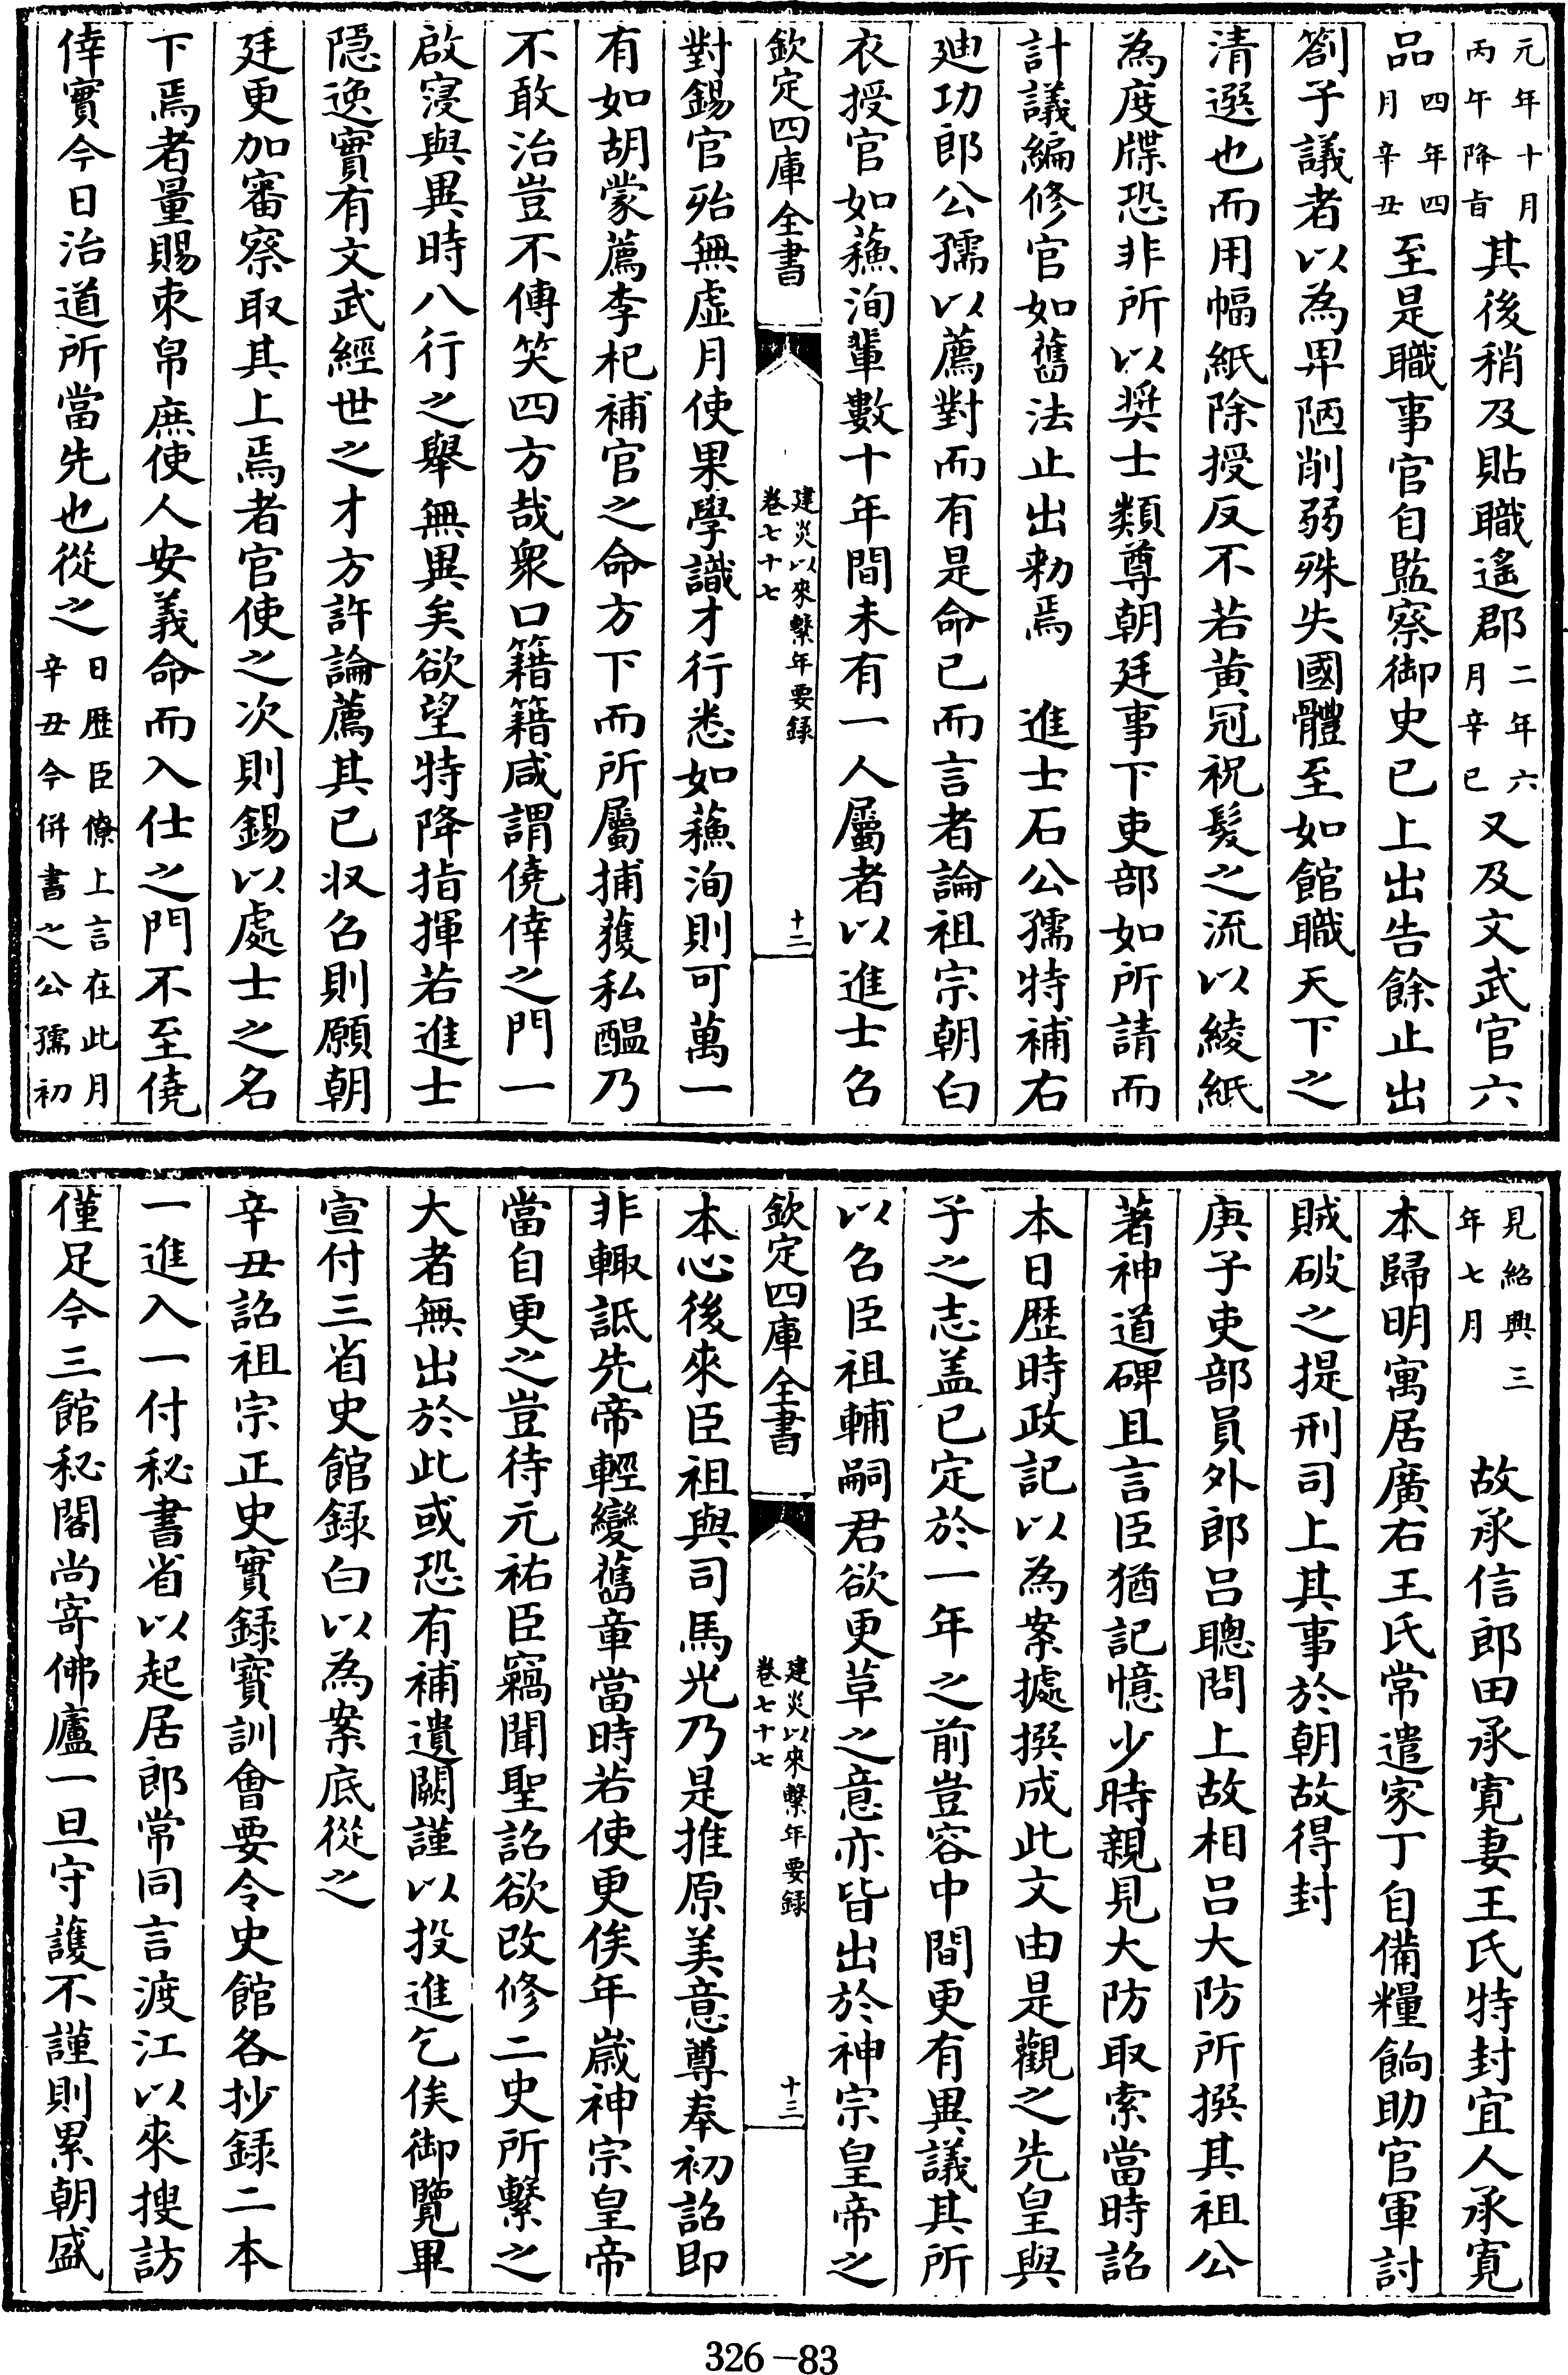 元年十月丙午降旨其後稍及貼職遙郡二年六月辛巳又及文武官六
品四年四月辛丑至是職事官自監察御史已上出告餘止出
劄子議者以為卑陋削弱殊失國體至如館職天下之
清選也而用幅紙除授反不若黄冠祝髮之流以綾紙
為度牒恐非所以奨士類尊朝廷事下吏部如所請而
計議編修官如舊法止出勅焉　進士石公孺特補右
廸功郎公孺以薦對而有是命已而言者論祖宗朝白
衣授官如蘓洵輩數十年間未有一人屬者以進士召
欽定四庫全書　建炎以來繫年要録卷七十七　十二
對錫官殆無虚月使果學識才行悉如蘓洵則可萬一
有如胡蒙薦李杞補官之命方下而所屬捕獲私醖乃
不敢治豈不傳笑四方哉衆口籍籍咸謂僥倖之門一
啟寖與異時八行之舉無異矣欲望特降指揮若進士
隠逸實有文武經世之才方許論薦其已収召則願朝
廷更加審察取其上焉者官使之次則錫以處士之名
下焉者量賜束帛庶使人安義命而入仕之門不至僥
倖實今日治道所當先也從之日歴臣僚上言在此月辛丑今併書之公孺初
見紹興三年七月　故承信郎田承寛妻王氏特封宜人承寛
本歸明寓居廣右王氏常遣家丁自備糧餉助官軍討
賊破之提刑司上其事於朝故得封
庚子吏部員外郎吕聰問上故相吕大防所撰其祖公
著神道碑且言臣猶記憶少時親見大防取索當時詔
本日歴時政記以為案據撰成此文由是觀之先皇與
子之志盖已定於一年之前豈容中間更有異議其所
以召臣祖輔嗣君欲更草之意亦皆出於神宗皇帝之
欽定四庫全書　建炎以來繫年要録卷七十七　十三
本心後來臣祖與司馬光乃是推原美意尊奉初詔即
非輙詆先帝輕變舊章當時若使更俟年嵗神宗皇帝
當自更之豈待元祐臣竊聞聖詔欲改修二史所繫之
大者無出於此或恐有補遺闕謹以投進乞俟御覽畢
宣付三省史館録白以為案底從之
辛丑詔祖宗正史實録寳訓會要令史館各抄録二本
一進入一付秘書省以起居郎常同言渡江以來搜訪
僅足今三館秘閣尚寄佛廬一旦守護不謹則累朝盛
326-83